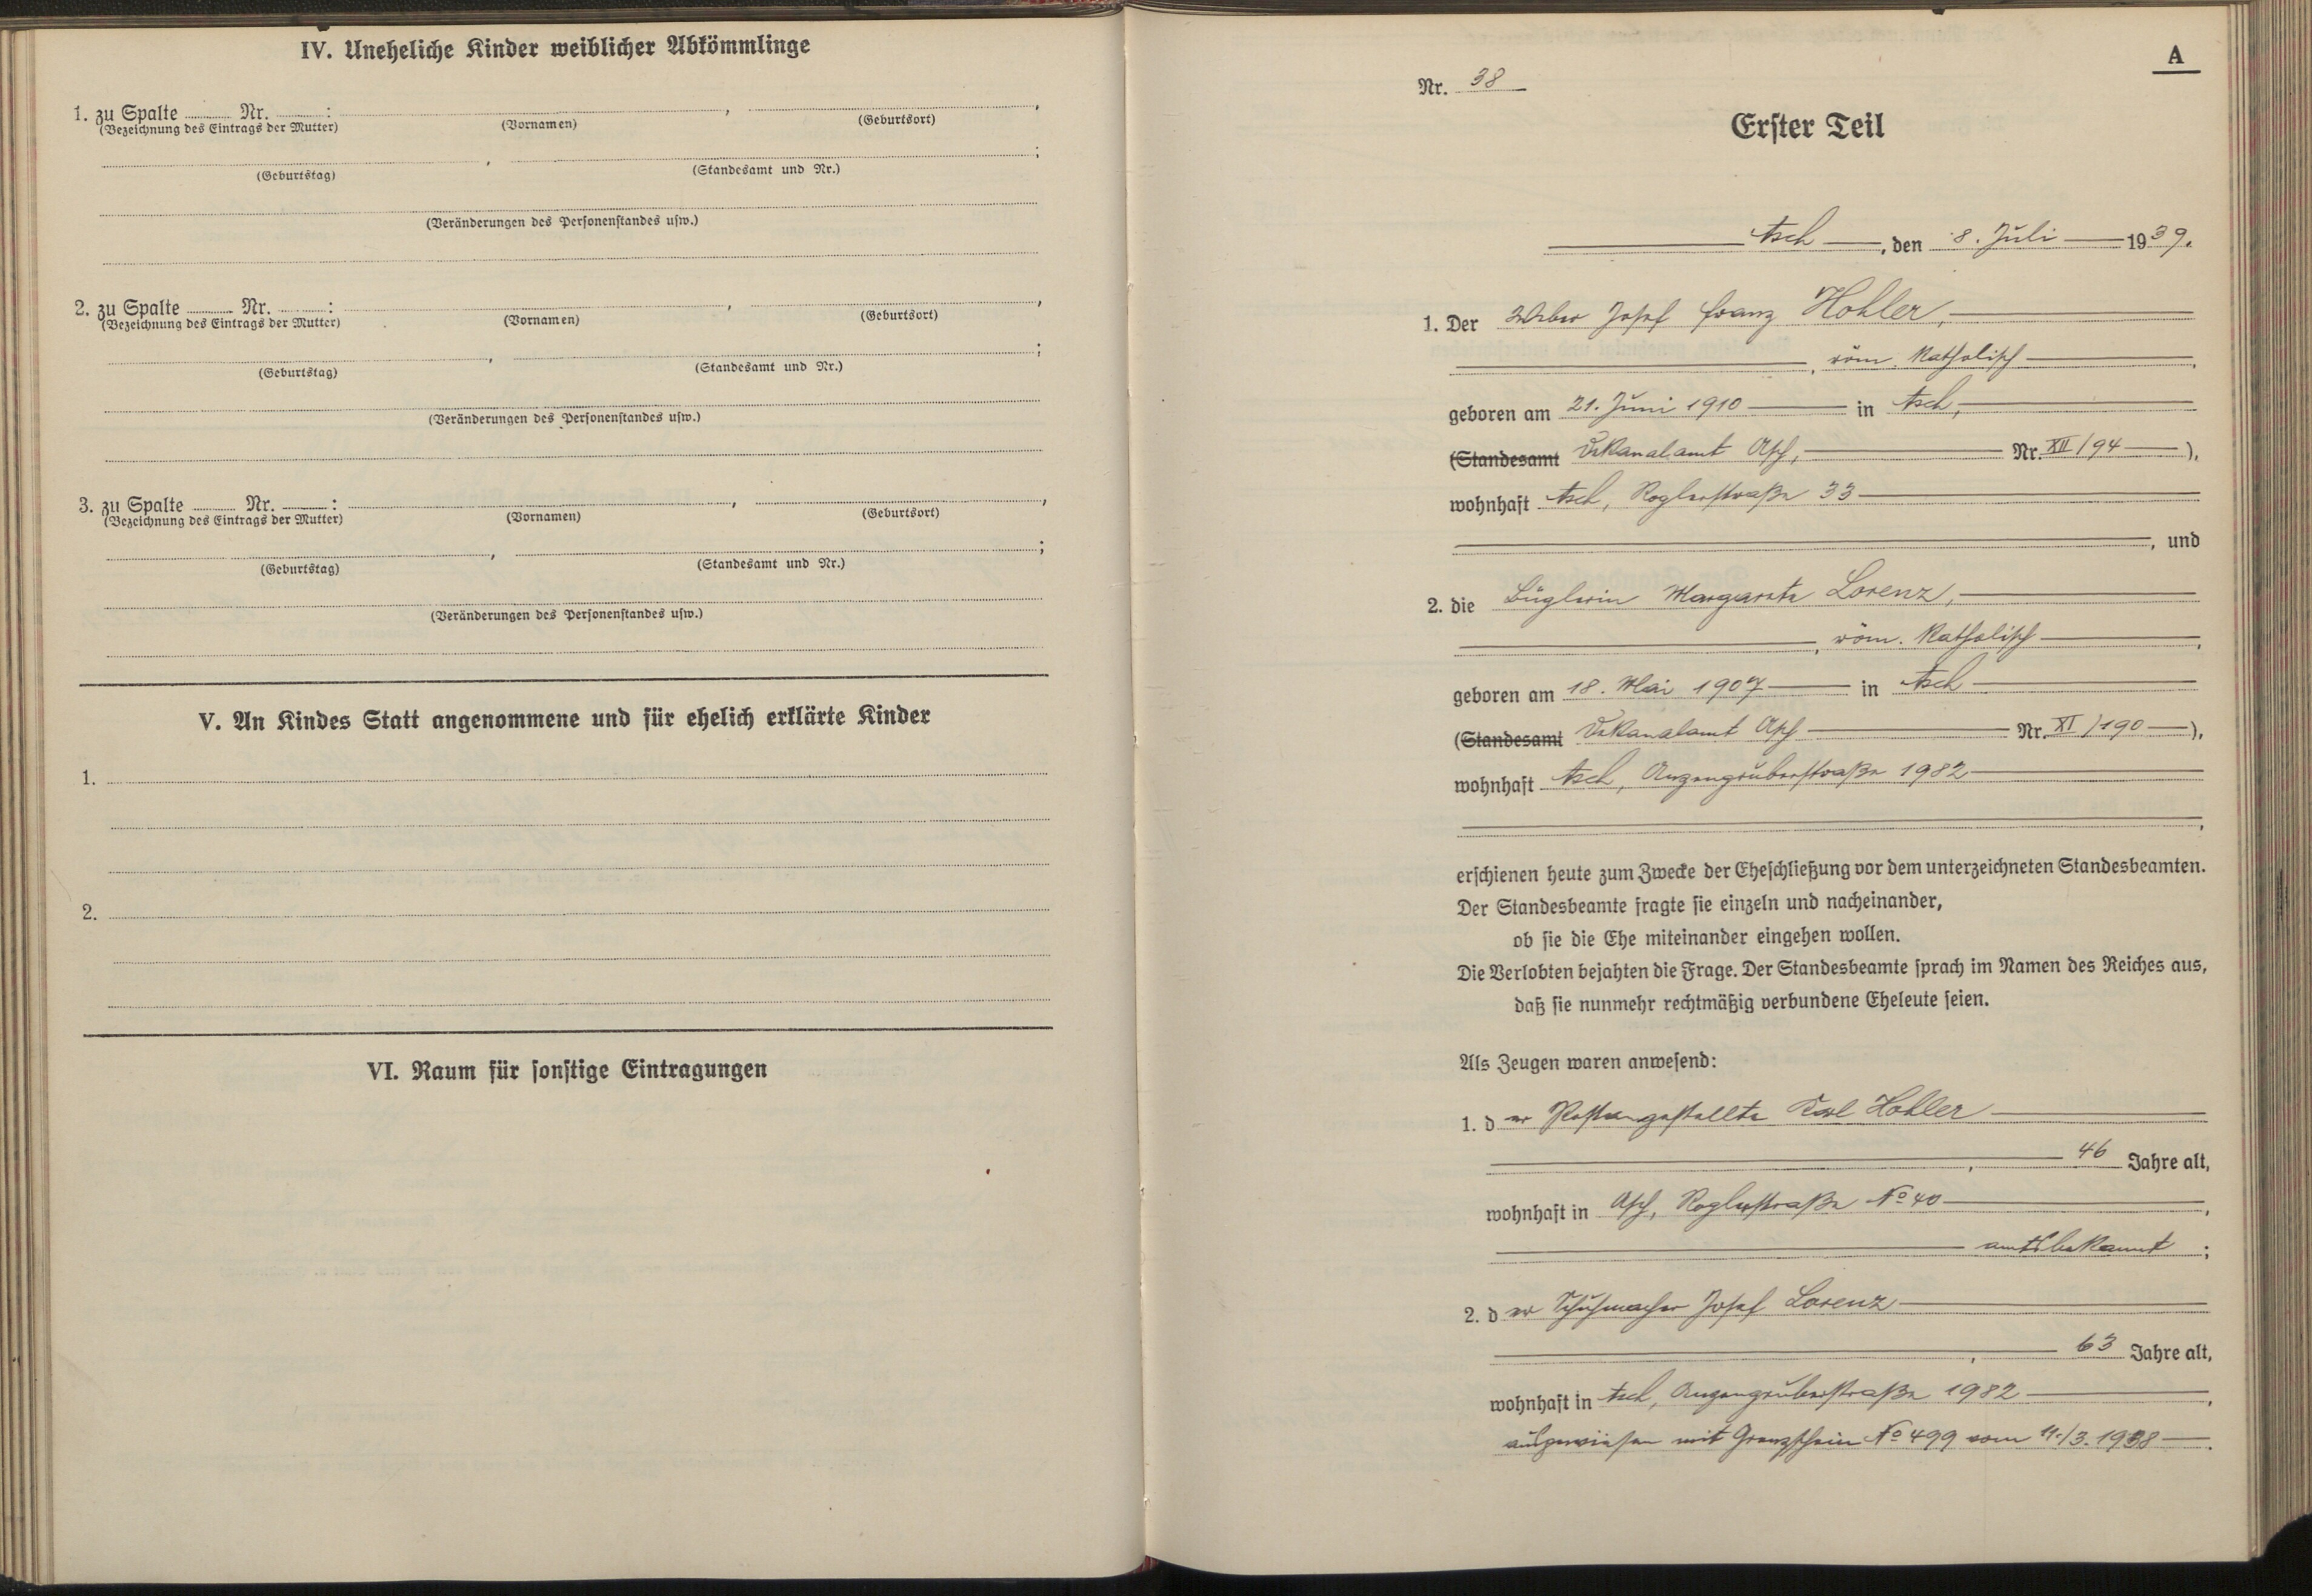 IV. Uneheliche Kinder weiblicher Abkömmlinge
1. zu Spalte ........ Nr. ........ : ........ , ........ ,
(Bezeichnung des Eintrags der Mutter) (Vornamen) (Geburtsort)
........ , ........ ;
(Geburtstag) (Standesamt und Nr.)
(Veränderungen des Personenstandes usw.)
2. zu Spalte ........ Nr. ........ : ........ , ........ ,
(Bezeichnung des Eintrags der Mutter) (Vornamen) (Geburtsort)
........ , ........ ;
(Geburtstag) (Standesamt und Nr.)
(Veränderungen des Personenstandes usw.)
3. zu Spalte ........ Nr. ........ : ........ , ........ ,
(Bezeichnung des Eintrags der Mutter) (Vornamen) (Geburtsort)
........ , ........ ;
(Geburtstag) (Standesamt und Nr.)
(Veränderungen des Personenstandes usw.)
V. An Kindes Statt angenommene und für ehelich erklärte Kinder
1.
2.
VI. Raum für sonstige Eintragungen
A
Nr. 38
Erster Teil
Asch, den 8. Juli 1939.
1. Der Weber Josef Franz Hohler,
, röm. katholisch,
geboren am 21. Juni 1910 in Asch,
(Standesamt Dekanalamt Asch, Nr. XII/94),
wohnhaft Asch, Roglerstraße 33
, und
2. die Büglerin Margareta Lorenz,
, röm. katholisch,
geboren am 18. Mai 1907 in Asch
(Standesamt Dekanalamt Asch Nr. XI/190),
wohnhaft Asch, Anzengruberstraße 1982
,
erschienen heute zum Zwecke der Eheschließung vor dem unterzeichneten Standesbeamten.
Der Standesbeamte fragte sie einzeln und nacheinander,
ob sie die Ehe miteinander eingehen wollen.
Die Verlobten bejahten die Frage. Der Standesbeamte sprach im Namen des Reiches aus,
daß sie nunmehr rechtmäßig verbundene Eheleute seien.
Als Zeugen waren anwesend:
1. der Postangestellte Karl Hohler
, 46 Jahre alt,
wohnhaft in Asch, Roglerstraße No 40,
amtsbekannt ;
2. der Schuhmacher Josef Lorenz
, 63 Jahre alt,
wohnhaft in Asch, Anzengruberstraße 1982,
ausgewiesen mit Grenzschein No 499 vom 11./3. 1938.